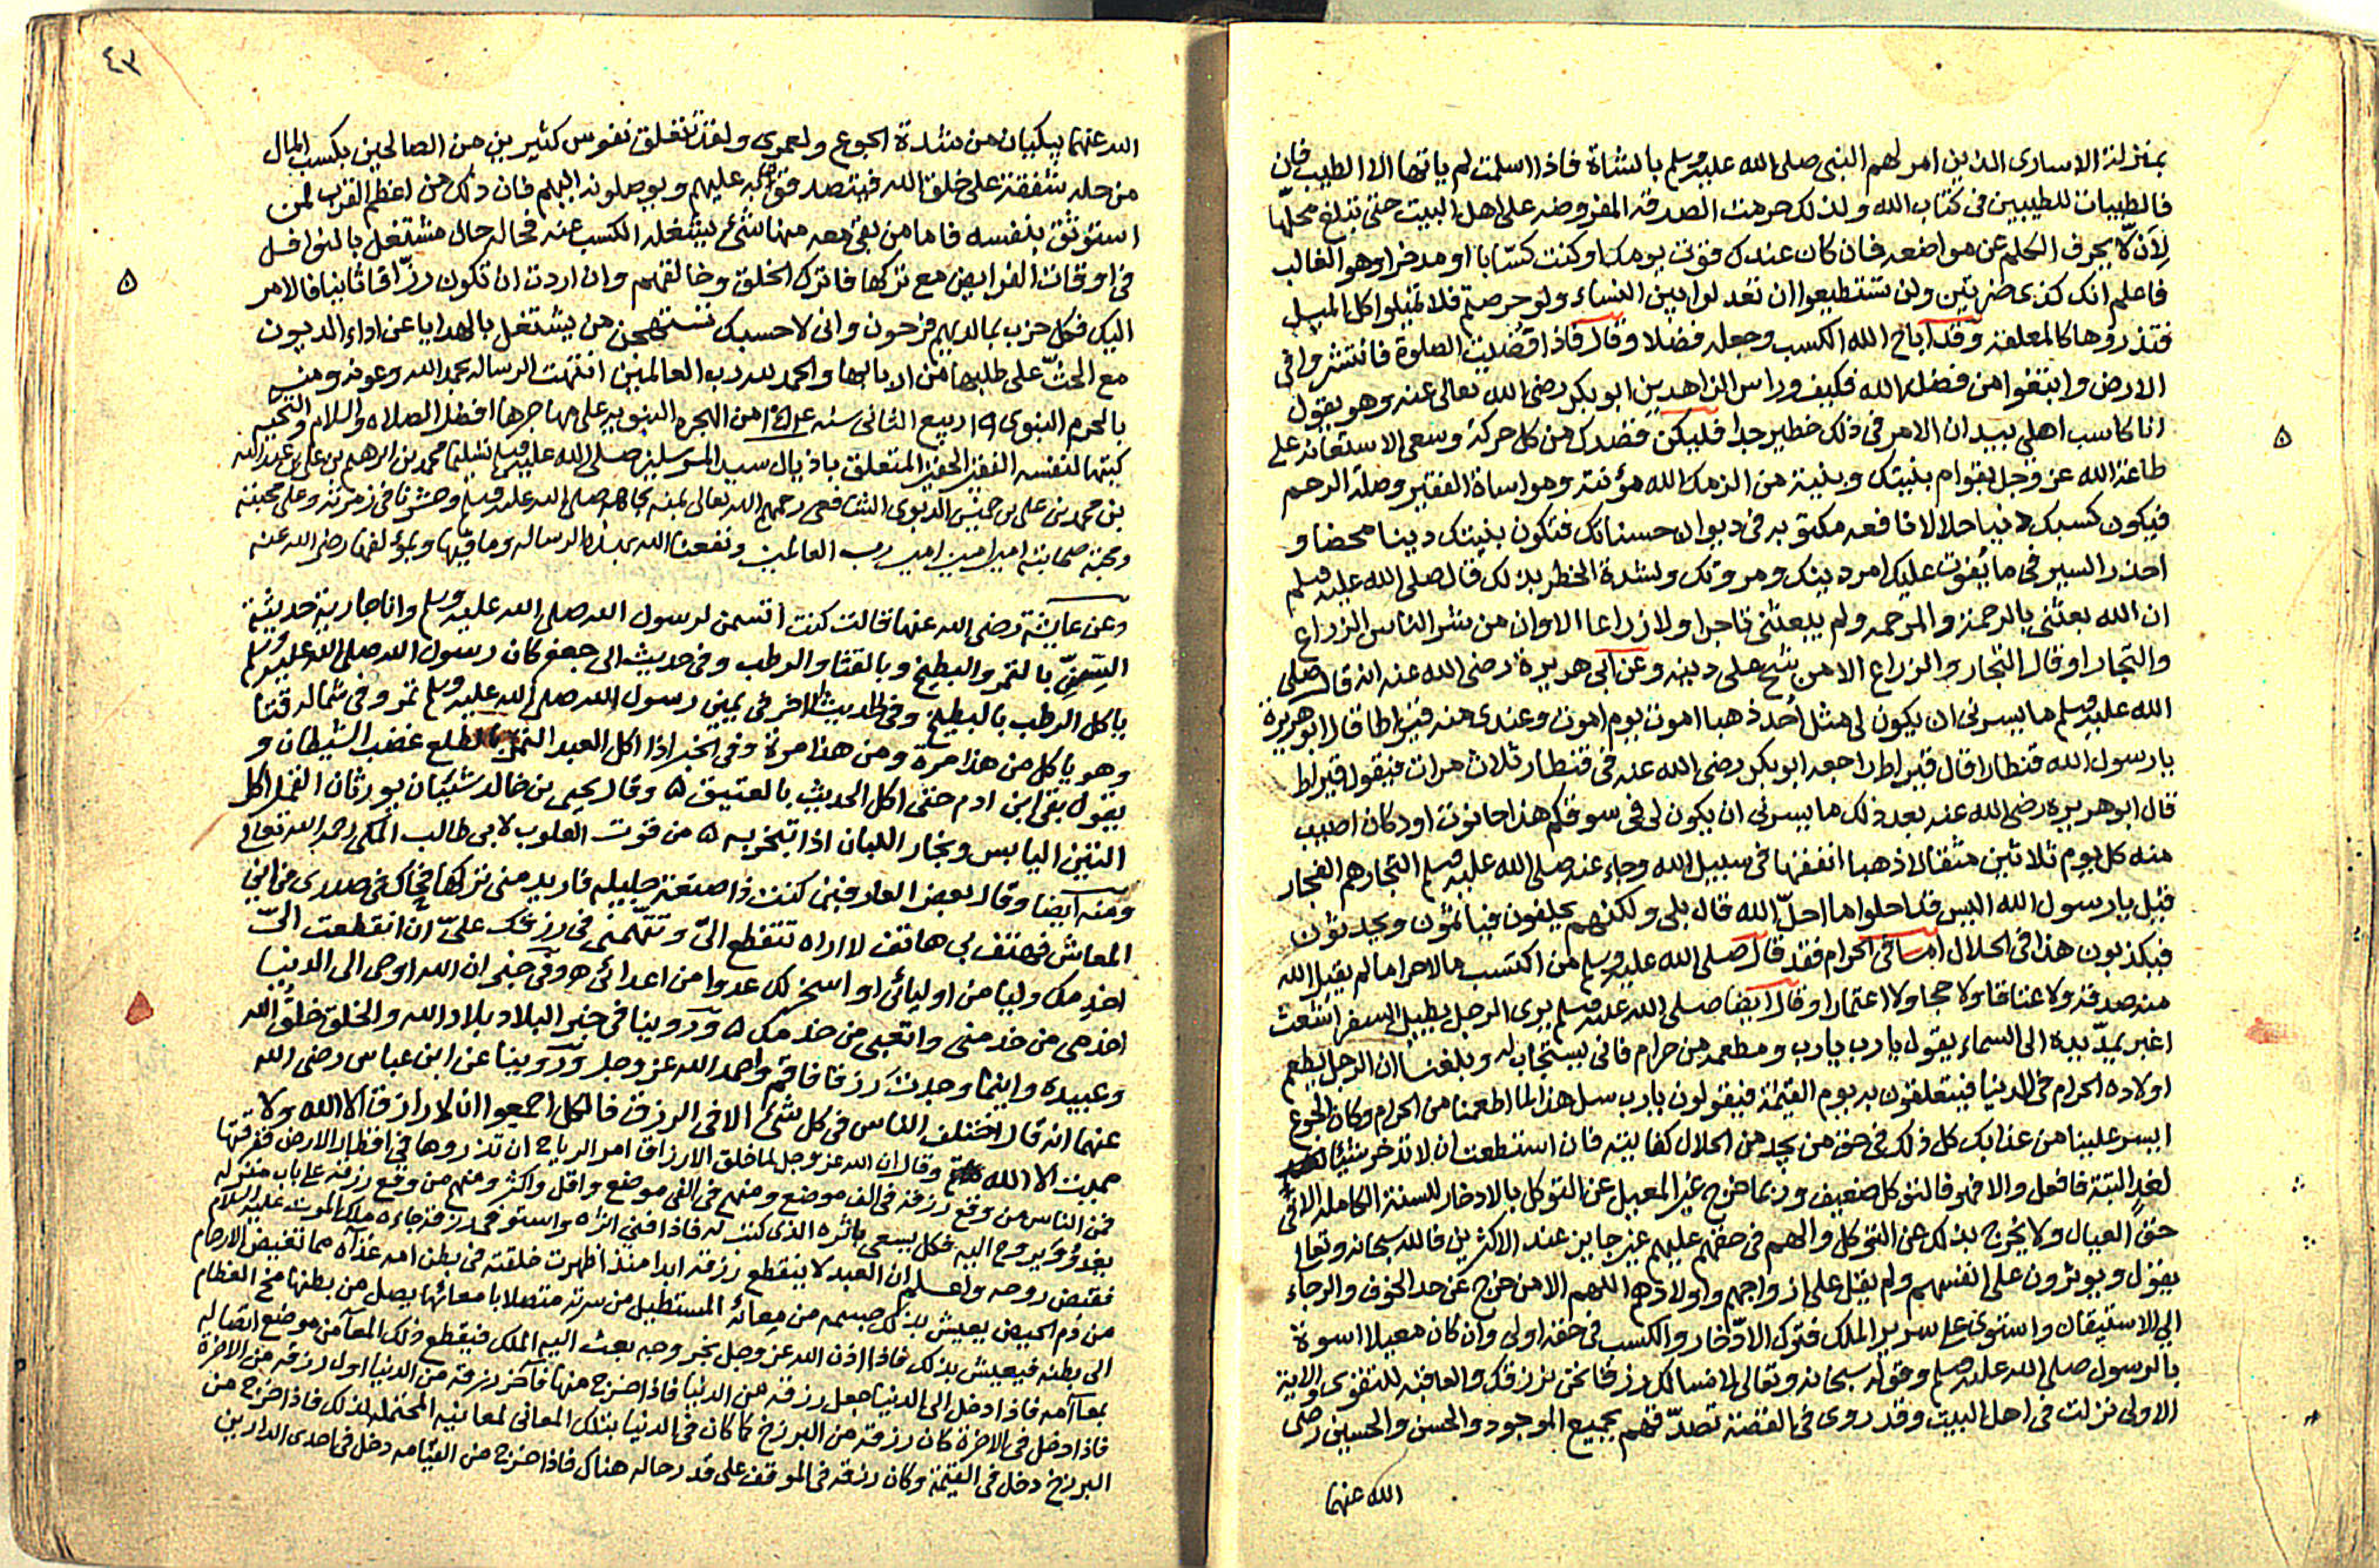 بمنزلة الاسارى الذين امر لهم النبى صلى الله عليه وسلم بالشاة فاذا اسلمت لم ياتها الا الطيب فان
فالطيبات للطيبين فى كتاب الله ولذلك حرمت الصدقة المفروضة على اهل البيت حتى تبلغ محلّها
لِأن لا يحرف الكلم عن مواضعه فان كان عندك قوت يومك او كنت كسّابا او مدخرا وهو الغالب
فاعلم انك كذى ضرتين ولن تستطيعوا ان تعدلوا بين النساء ولو حرصتم فلا تميلوا كل الميل
فتذروها كالمعلقة وقد اباح الله الكسب وجعله فضلا وقال فاذا قضيت الصلوة فانتشروا فى
الارض وابتغوا من فضل الله فكيف وراس الزاهدين ابو بكر رضى الله تعالى عنه وهو يقول
انا كاسب اهلى بيد ان الامر فى ذلك خطير جدا فليكن قصدك من كل حركة وسعى الاستعانة على
طاعة الله عز وجل بقوام بنيتك وبنية من الزمك الله مؤنته ومواساة الفقير وصلة الرحم
فيكون كسبك دنيا حلالا نافعه مكتوبه فى ديوان حسناتك فتكون بنيتك دينا محضا و
احذر السير فى ما يُفوت عليك امر دينك ومروتك ولشدة الخطر بذلك قال صلى الله عليه وسلم
ان الله بعثنى بالرحمة والمرحمه ولم يبعثنى تاجرا ولا زراعا الا وان من شر الناس الزراع
والتجار او قال التجار والزراع الا من شح على دينه وعن ابى هريرة رضى الله عنه انه قال صلى
الله عليه وسلم ما يسرنى ان يكون لى مثل أُحد ذهبا اموت يوم اموت وعندى منه قيراطا قال ابو هريرة
يا رسول الله قنطارا قال قيراطا راجعه ابو بكر رضى الله عنه فى قنطار ثلاث مرات فيقول قيراط
قال ابو هريرة رضى الله عنه بعد ذلك ما يسرنى ان يكون لى فى سوقكم هذا حانوت او دكان اصيب
منه كل يوم ثلاثين مثقالا ذهبا انفقها فى سبيل الله وجاء عنه صلى الله عليه وسلم التجار هم الفجار
قيل يا رسول الله اليس قد احلوا ما احلّ الله قال بلى ولكنهم يحلفون فياثمون ويحدثون
فيكذبون هذا فى الحلال اما فى الحرام فقد قال صلى الله عليه وسلم من اكتسب مالا حراما لم يقبل الله
منه صدقة ولا عتاقا ولا حجا ولا اعتمارا وقال ايضا صلى الله عليه وسلم يرى الرجل يطيل السفر اشعث
اغبر يمدّ يده الى السماء يقول يا رب يا رب ومطعمه من حرام فانى يستجاب له وبلغنا ان الرجل يطعم
اولاده الحرام فى الدنيا فيتعلقون به يوم القيمة فيقولون يا رب سل هذا لما اطعمنا من الحرام وكان الجوع
ايسر علينا من عذابك كل ذلك فى حق من يجد من الحلال كفايته فان استطعت ان لا تدخر شيئا
لغدٍ البتة فافعل والا فهو فالتوكل ضعيف وربما خرج غير المعيل عن التوكل بالادخار للسنة الكاملة الا فى
حق العيال ولا يخرج بذلك عن التوكل والهم فى حقهم عليهم غير جايز عند الاكثرين فالله سبحانه وتعالى
يقول ويوثرون على انفسهم ولم يقل على ازواجهم واولادهم اللهم الا من خرج عن حد الخوف والرجاء
الى الاستيقان واستوى على سرير الملك فترك الادّخار والكسب فى حقه اولى وان كان معيلا اسوة
بالرسول صلى الله عليه وسلم وقوله سبحانه وتعالى لا نسالك رزقا نحن نرزقك والعاقبة للتقوى والاية
الاولى نزلت فى اهل البيت وقد روى فى القصة تصدّقهم بجميع الموجود والحسن والحسين رضى
الله عنهما
٤٣
الله عنهما يبكيان من شدة الجوع ولعمرى ولقد تتعلق نفوس كثيرين من الصالحين بكسب المال
من حله شفقة على خلق الله فيتصدقوا به عليهم ويوصلونه اليهم فان ذلك من اعظم القرب لمن
استوثق بنفسه فاما من بقى معه منها شئ يشغله الكسب عنه فحاله حال مشتغل بالنوافل
فى اوقات الفرايض مع تركها فاترك الخلق وخالقهم وان اردت ان تكون رزّاقا ثانيا فالامر
اليك فكل حزب بما لديهم فرحون وانى لاحسبك تستهجن من يشتغل بالهدايا عن اداء الديون
مع الحثّ على طلبها من اربابها والحمد لله رب العالمين انتهت الرساله بحمد الله وعونه ومنه
بالحرم النبوى ١٩ ربيع الثانى سنه من الهجره النبويه على مهاجرها افضل الصلاه والسلام والتحيه
كتبها لنفسه الفقير الحقير المتعلق باذيال سيد المرسلين صلى الله عليه وسلم تسليما محمد بن ابرهيم بن على بن عبد الله
بن محمد بن على بن الشافعى رحمهم الله تعالى بمنه بجاهه صلى الله عليه وسلم وحشرنا فى زمرته وعلى محبته
ومحبة صحابته امين امين امين رب العالمين ونفعنا الله بهذه الرساله وما فيها وبمؤلفها رضى الله عنه
وعن عايشة رضى الله عنها قالت كنت اتسمن لرسول الله صلى الله عليه وسلم وانا جارية حديثة
السّنّ بالتمر والبطيخ وبالقثا والرطب وفى حديث ابى جعفر كان رسول الله صلى الله عليه وسلم
ياكل الرطب بالبطيخ وفى الحديث الاخر فى يمين رسول الله صلى الله عليه وسلم تمر وفى شماله قثا
وهو ياكل من هذا مرة ومن هذا مرة وفى الخبر اذا اكل العبد التمر بالطلع غضب الشيطان و
يقول بقى ابن ادم حتى اكل الحديث بالعتيق ۵ وقال يحيى بن خالد شيئان يورثان القمل اكل
التين اليابس وبخار اللبان اذا تبخر به ۵ من قوت القلوب لابى طالب المكى رحمه الله تعالى
ومنه ايضا وقال بعض العارفين كنت ذا صنعة جليله فاريد منى تركها فحاك فى صدرى من اين
المعاش فهتف بى هاتف لا اراه تنقطع الىّ وتتّهمنى فى رزقك علىّ ان انقطعت الىّ
اخدمك وليا من اوليائى او اسخر لك عدوا من اعدائى ۵ وفى خبر ان الله اوحى الى الدنيا
اخدمى من خدمنى واتعبى من خدمك ۵ وروينا فى خبر البلاد بلاد الله والخلق خلقُ الله
وعبيده واينما وجدت رزقا فاقم واحمد الله عز وجل وروينا عن ابن عباس رضى الله
عنهما انه قال اختلف الناس فى كل شئ الا فى الرزق فالكل اجمعوا ان لا رازق الا الله ولا
مميت الا الله وقال ان الله عز وجل لما خلق الارزاق امر الرياح ان تذروها فى اقطار الارض ففرقتها
فمن الناس من وقع رزقه فى الف موضع ومنهم فى الفى موضع واقل واكثر ومنهم من وقع رزقه على باب منزله
يغدو ويروح اليه فكل يسعى باثره الذى كتب له فاذا افنى اثره واستوفى رزقه جاءه ملك الموت عليه السلام
فقبض روحه واعلم ان العبد لا ينقطع رزقه ابدا منذ اظهرت خلقته فى بطن امه غذاه مما تغيض الارحام
من دم الحيض يعيش بذلك جسمه من معائه المستطيل من سرته متصلا بامعائها يصل من بطنها مخ العظام
الى بطنه فيعيش بذلك فاذا اذن الله عز وجل بخروجه بعث اليه الملك فيقطع ذلك المعا من موضع اتصاله
بمعا امه فاذا ادخل الى الدنيا جعل رزقه من الدنيا فاذا خرج منها فآخر رزقه من الدنيا اول رزقه من الاخرة
فاذا دخل فى الاخرة كان رزقه من البرزخ كما كان فى الدنيا بتلك المعانى لمعانيه المحتمله لذلك فاذا خرج من
البرزخ دخل فى القيمة وكان رزقه فى الموقف على قدر حاله هناك فاذا خرج من القيامه دخل فى احدى الدارين